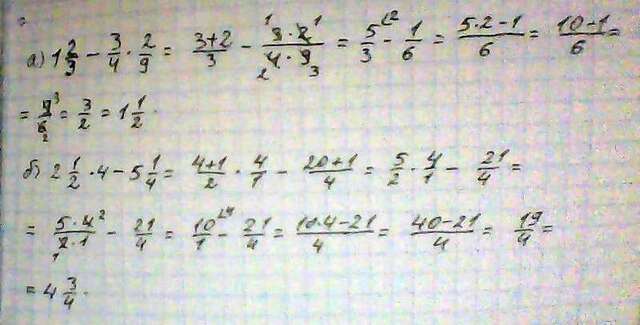 а) 1 2/3 - 3/4 · 2/9 = (3+2)/3 - (3·2)/(4·9) = 5/3 - 1/6 = (5·2-1)/6 = (10-1)/6 =
= 9/6 = 3/2 = 1 1/2.
б) 2 1/2 · 4 - 5 1/4 = (4+1)/2 · 4/1 - (20+1)/4 = 5/2 · 4/1 - 21/4 =
= (5·4)/(2·1) - 21/4 = 10/1 - 21/4 = (10·4-21)/4 = (40-21)/4 = 19/4 =
= 4 3/4.